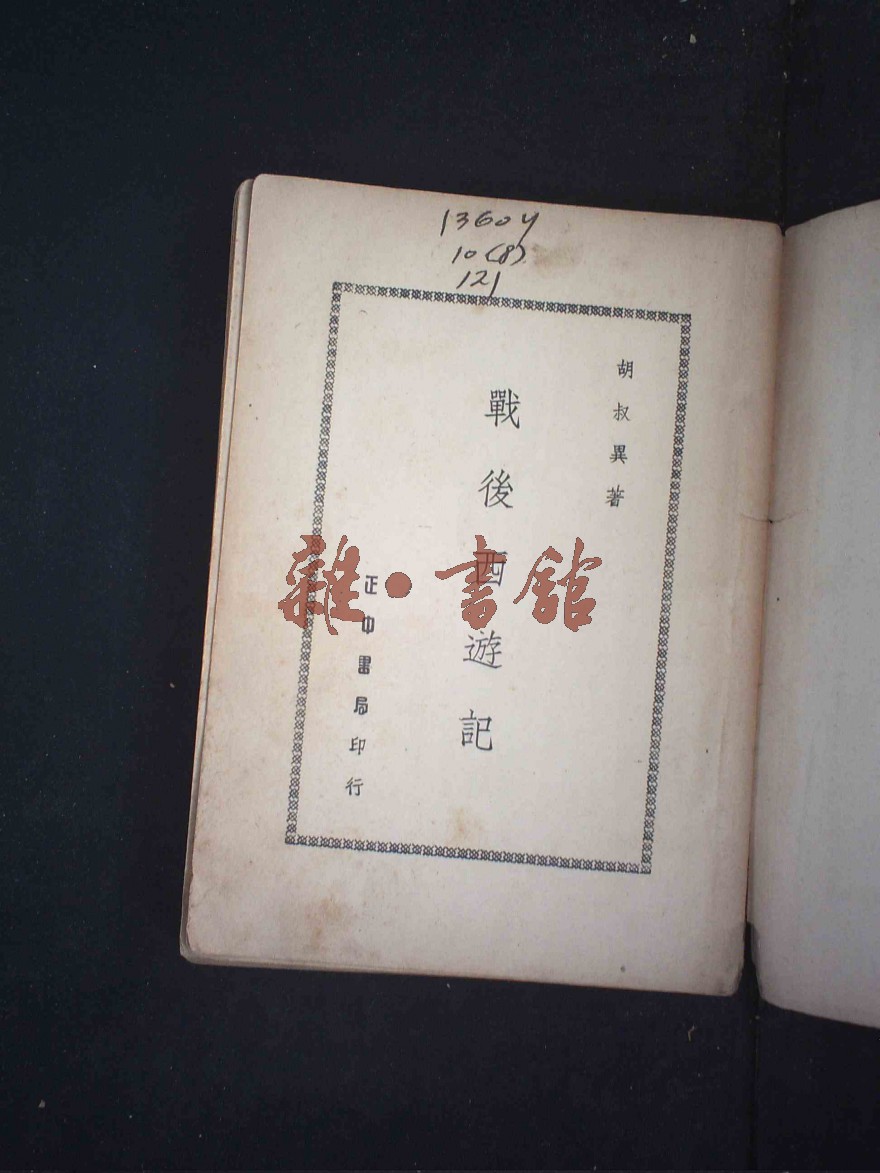 13604
10(8)
121
胡叔異著
戰後西遊記
正中書局印行
雜·書舘